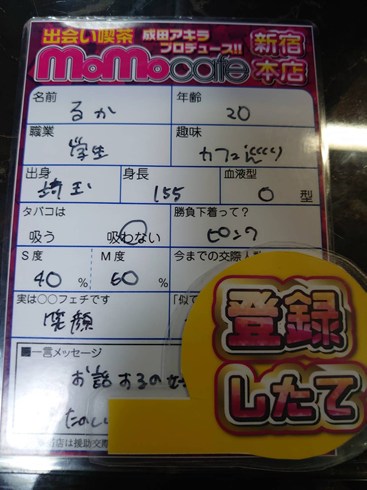 出会い喫茶 成田アキラ プロデュース!!
MoMocafe 新宿本店
名前 るか 年齢 20
職業 学生 趣味 カフェ巡り
出身 埼玉 身長 155 血液型 O型
タバコは 吸う 吸わない 勝負下着って? ピンク
S度 40% M度 60% 今までの交際人
実は○○フェチです 笑顔 「似て
■一言メッセージ
お話するの好
たのし
店は援助交際
登録
したて